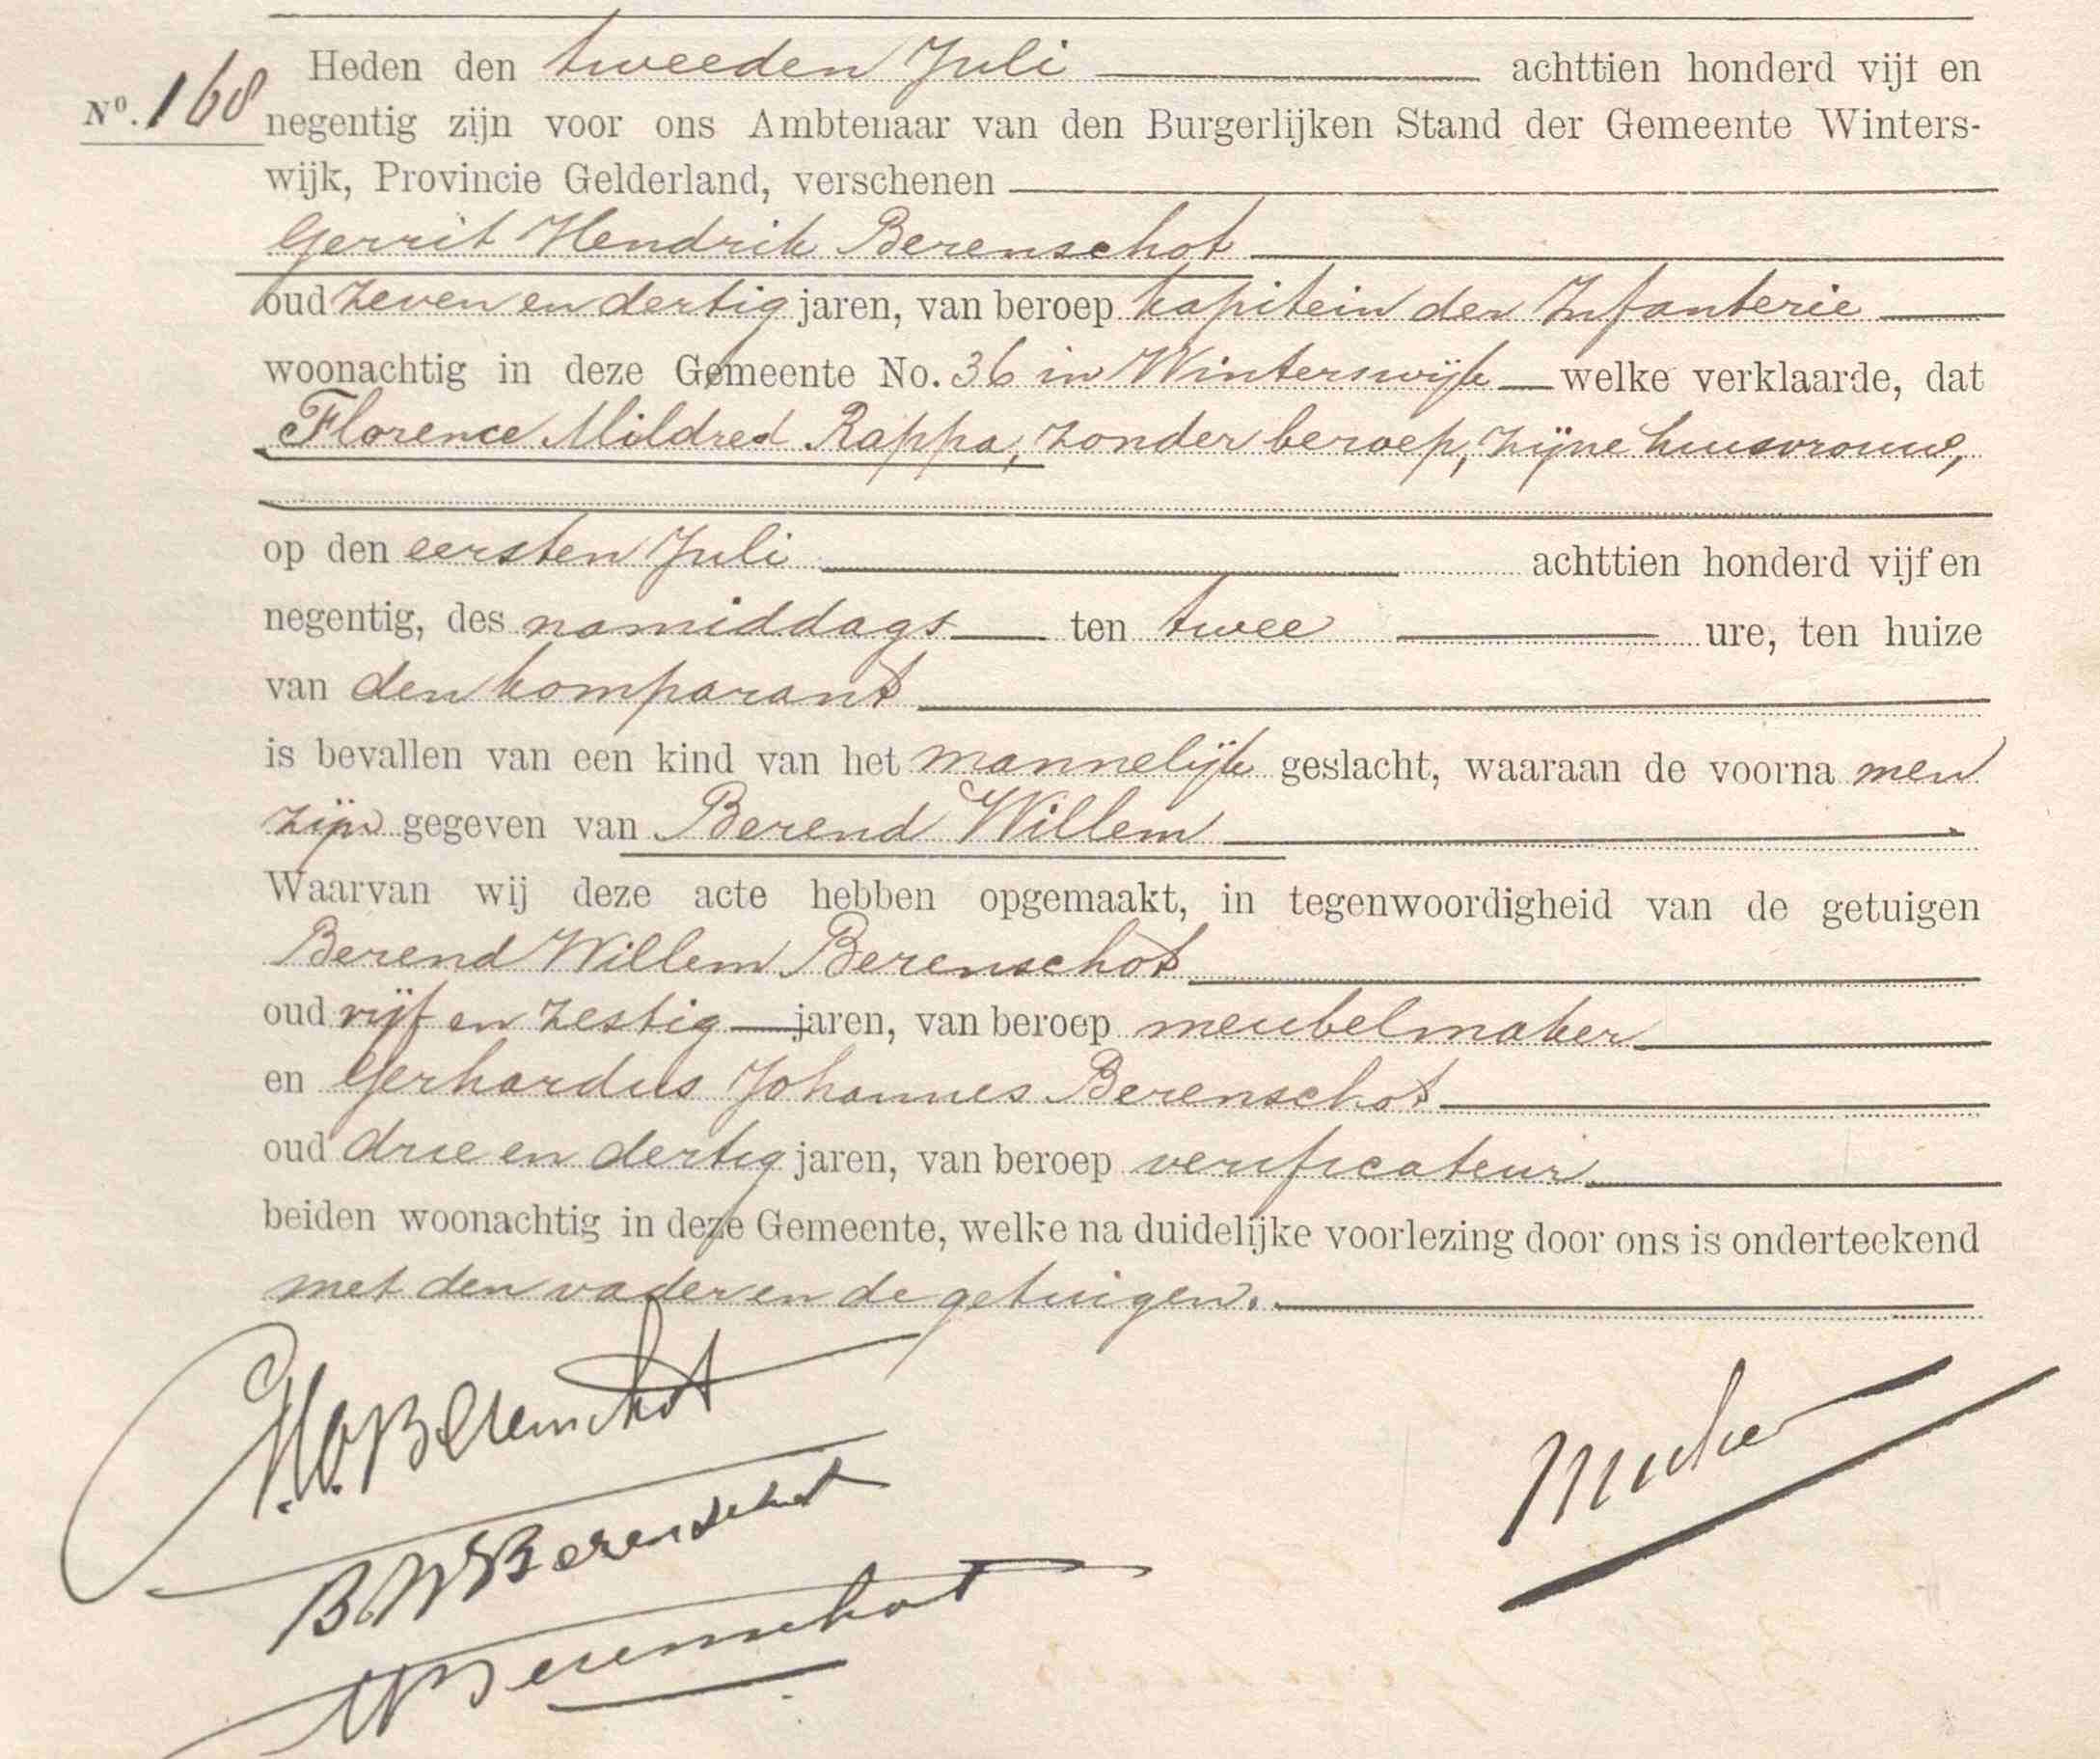 Heden den tweeden Juli achttien honderd vijf en
No. 168
negentig zijn voor ons Ambtenaar van den Burgerlijken Stand der Gemeente Winters-
wijk, Provincie Gelderland, verschenen
Gerrit Hendrik Berenschot
oud zeven en dertig jaren, van beroep kapitein der Infanterie
woonachtig in deze Gemeente No. 36 in Winterswijk welke verklaarde, dat
Florence Mildred Rappa, zonder beroep, zijne huisvrouw,
op den eersten Juli achttien honderd vijf en
negentig, des namiddags ten twee ure, ten huize
van den komparant
is bevallen van een kind van het mannelijk geslacht, waaraan de voorna men
zijn gegeven van Berend Willem
Waarvan wij deze acte hebben opgemaakt, in tegenwoordigheid van de getuigen
Berend Willem Berenschot
oud vijf en zestig jaren, van beroep meubelmaker
en Gerhardus Johannes Berenschot
oud drie en dertig jaren, van beroep verificateur
beiden woonachtig in deze Gemeente, welke na duidelijke voorlezing door ons is onderteekend
met den vader en de getuigen.
Berenschot
B W Berenschot
Berenschot